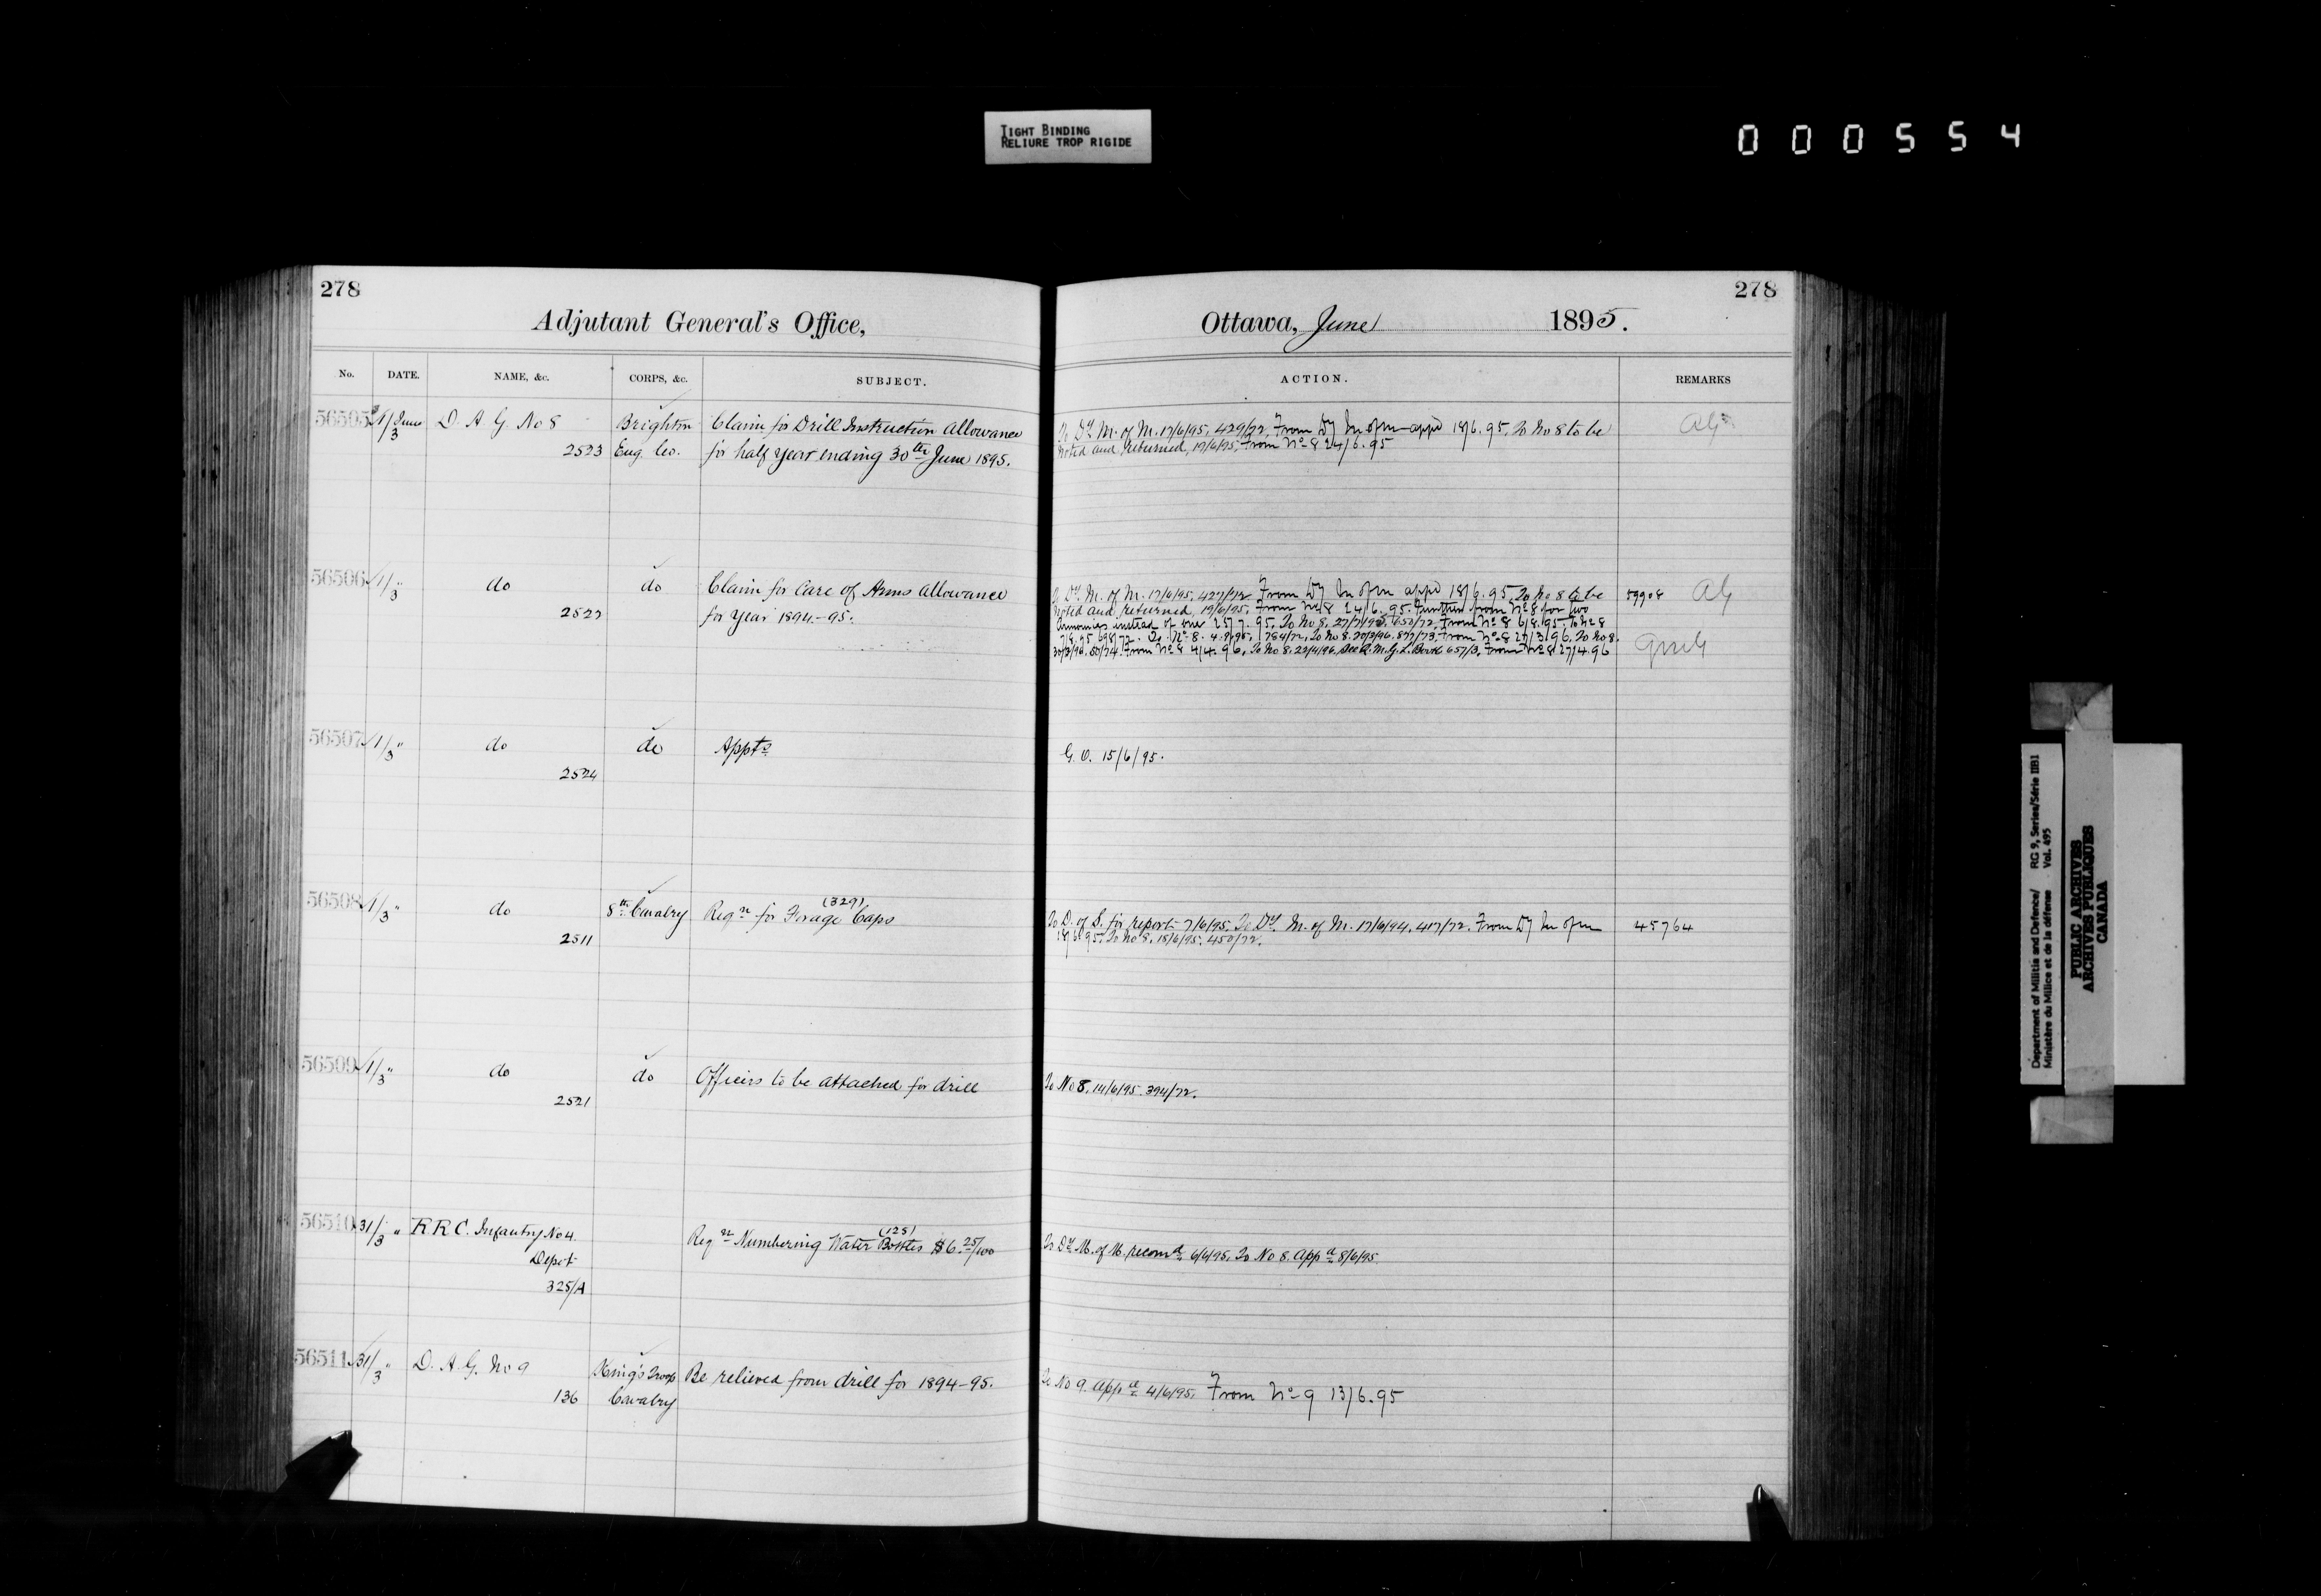 TIGHT BINDING
RELIURE TROP RIGIDE
000554
278
Adjutant General's Office,
No. DATE. NAME, &c. CORPS, &c. SUBJECT.
56505 1/3 June D. A. G. No 8 Brighton Claim for Drill Instruction Allowance
2523 Eng. Co. for half year ending 30th June 1895.
56506 1/3 " do do Claim for Care of Arms Allowance
2522 for Year 1894-95.
56507 1/3 " do do Appts
2524
56508 1/3 " do 8th Cavalry Reqn for Forage (329) Caps
2511
56509 1/3 " do do Officers to be attached for drill
2521
56510 31/3 " R R C. Infantry No 4. Reqn Numbering Water (125) Bottles $6.25/100
Depot
325/A
56511 31/3 " D. A. G. No 9 King's Troop Be relieved from drill for 1894-95.
136 Cavalry
278
Ottawa, June 1895.
ACTION. REMARKS
To Dy. M. of M. 17/6/95. 429/72. From Dy M of M appd 18/6.95. To No 8 to be
noted and returned, 19/6/95. From No 8 24/6.95
To Dy. M. of M. 17/6/95. 427/72. From Dy M of M appd 18/6.95 To No 8 to be 59908 AG
noted and returned, 19/6/95. From No 8 24/6.95. Further from No 8 for two
Armouries instead of one 25/7.95. To No 8. 27/7/95. 650/72. From No 8 6/8.95. To No 8
7/8.95 698/72. To No 8. 784/72. To No 8. 20/3/96. 877/73. From No 8 27/3.96. To No 8.
30/3/96. 50/74. From No 8 4/4.96. To No 8. 22/4/96. See Q. M. G. L. Book 657/3. From No 8 27/4.96
G. O. 15/6/95.
To D. of S. for report 7/6/95. To Dy. M. of M. 17/6/94. 417/72. From Dy M of M 45764
18/6.95. To No 8. 18/6/95. 450/72.
To No 8. 14/6/95. 394/72.
To Dy. M. of M. recomd 6/6/95. To No 8. Appd 8/6/95.
To No 9. Appd 4/6/95. From No 9 13/6.95
Department of Militia and Defence/ RG 9, Series/Série IIB1
Ministère du Milice et de la défense Vol. 495
PUBLIC ARCHIVES
ARCHIVES PUBLIQUES
CANADA